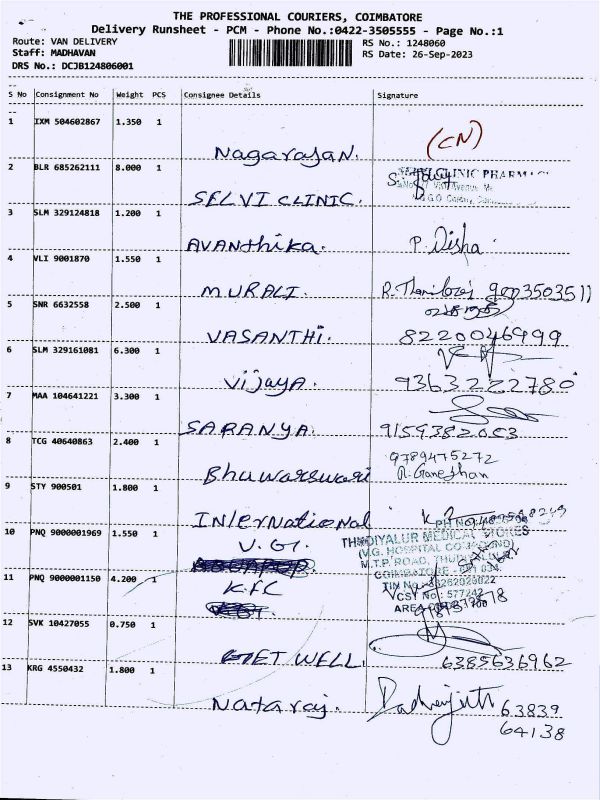 THE PROFESSIONAL COURIERS, COIMBATORE
Delivery Runsheet - PCM - Phone No.:0422-3505555 - Page No.:1
Route: VAN DELIVERY RS No.: 1248060
Staff: MADHAVAN RS Date: 26-Sep-2023
DRS No.: DCJB124806001
S No Consignment No Weight PCS Consignee Details Signature
1 IXM 504602867 1.350 1
Nagarajan. (CN)
2 BLR 685262111 8.000 1
SELVI CLINIC. CLINIC PHARMACY
3 SLM 329124818 1.200 1
AVANthika. P. Disha
4 VLI 9001870 1.550 1
MURALI. 9003503511
5 SNR 6632558 2.500 1
VASANTHI. 8220046999
6 SLM 329161081 6.300 1
Vijaya. 9363222780
7 MAA 104641221 3.300 1
SARANYA. 9159382003
8 TCG 40640863 2.400 1
9789475272
Bhuwarswari R. Ganeshan
9 STY 900501 1.800 1
INterNational
10 PNQ 9000001969 1.550 1
V.G. THUDIYALUR MEDICAL STORES
(V.G. HOSPITAL COMPOUND)
M.T.P. ROAD, THUDIYALUR
COIMBATORE
11 PNQ 9000001150 4.200 1
K.FC TIN No
CST No: 577242
AREA CODE
12 SVK 10427055 0.750 1
GET WELL. 6385636962
13 KRG 4550432 1.800 1
Nataraj. 63839
64138